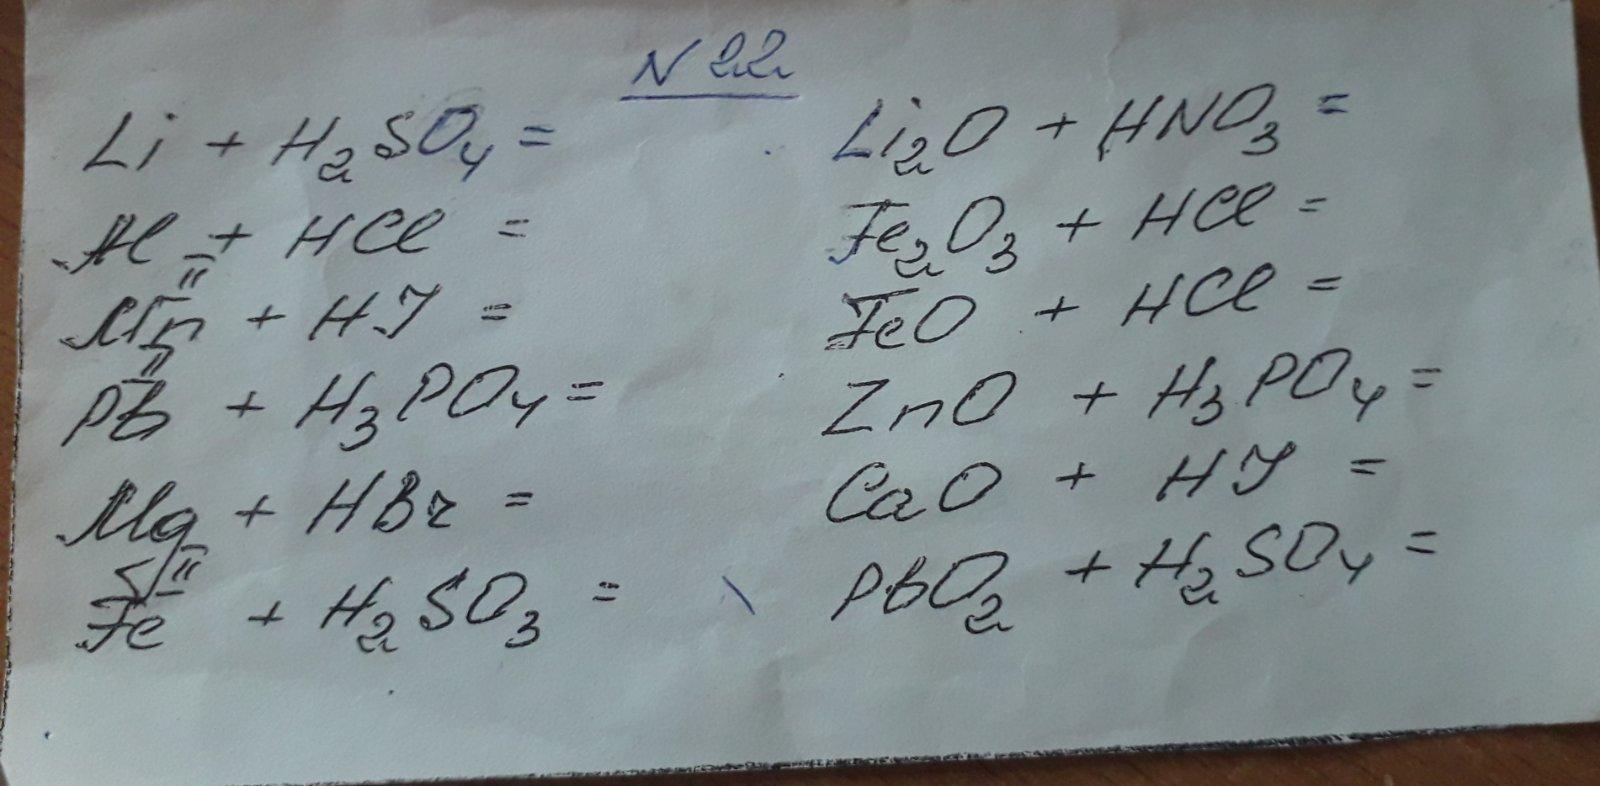 N 22
Li + H₂SO₄ =
Al + HCl =
II
Mn + HJ =
II
Pb + H₃PO₄ =
Mg + HBr =
II
Fe + H₂SO₃ =
Li₂O + HNO₃ =
Fe₂O₃ + HCl =
FeO + HCl =
ZnO + H₃PO₄ =
CaO + HJ =
PbO₂ + H₂SO₄ =